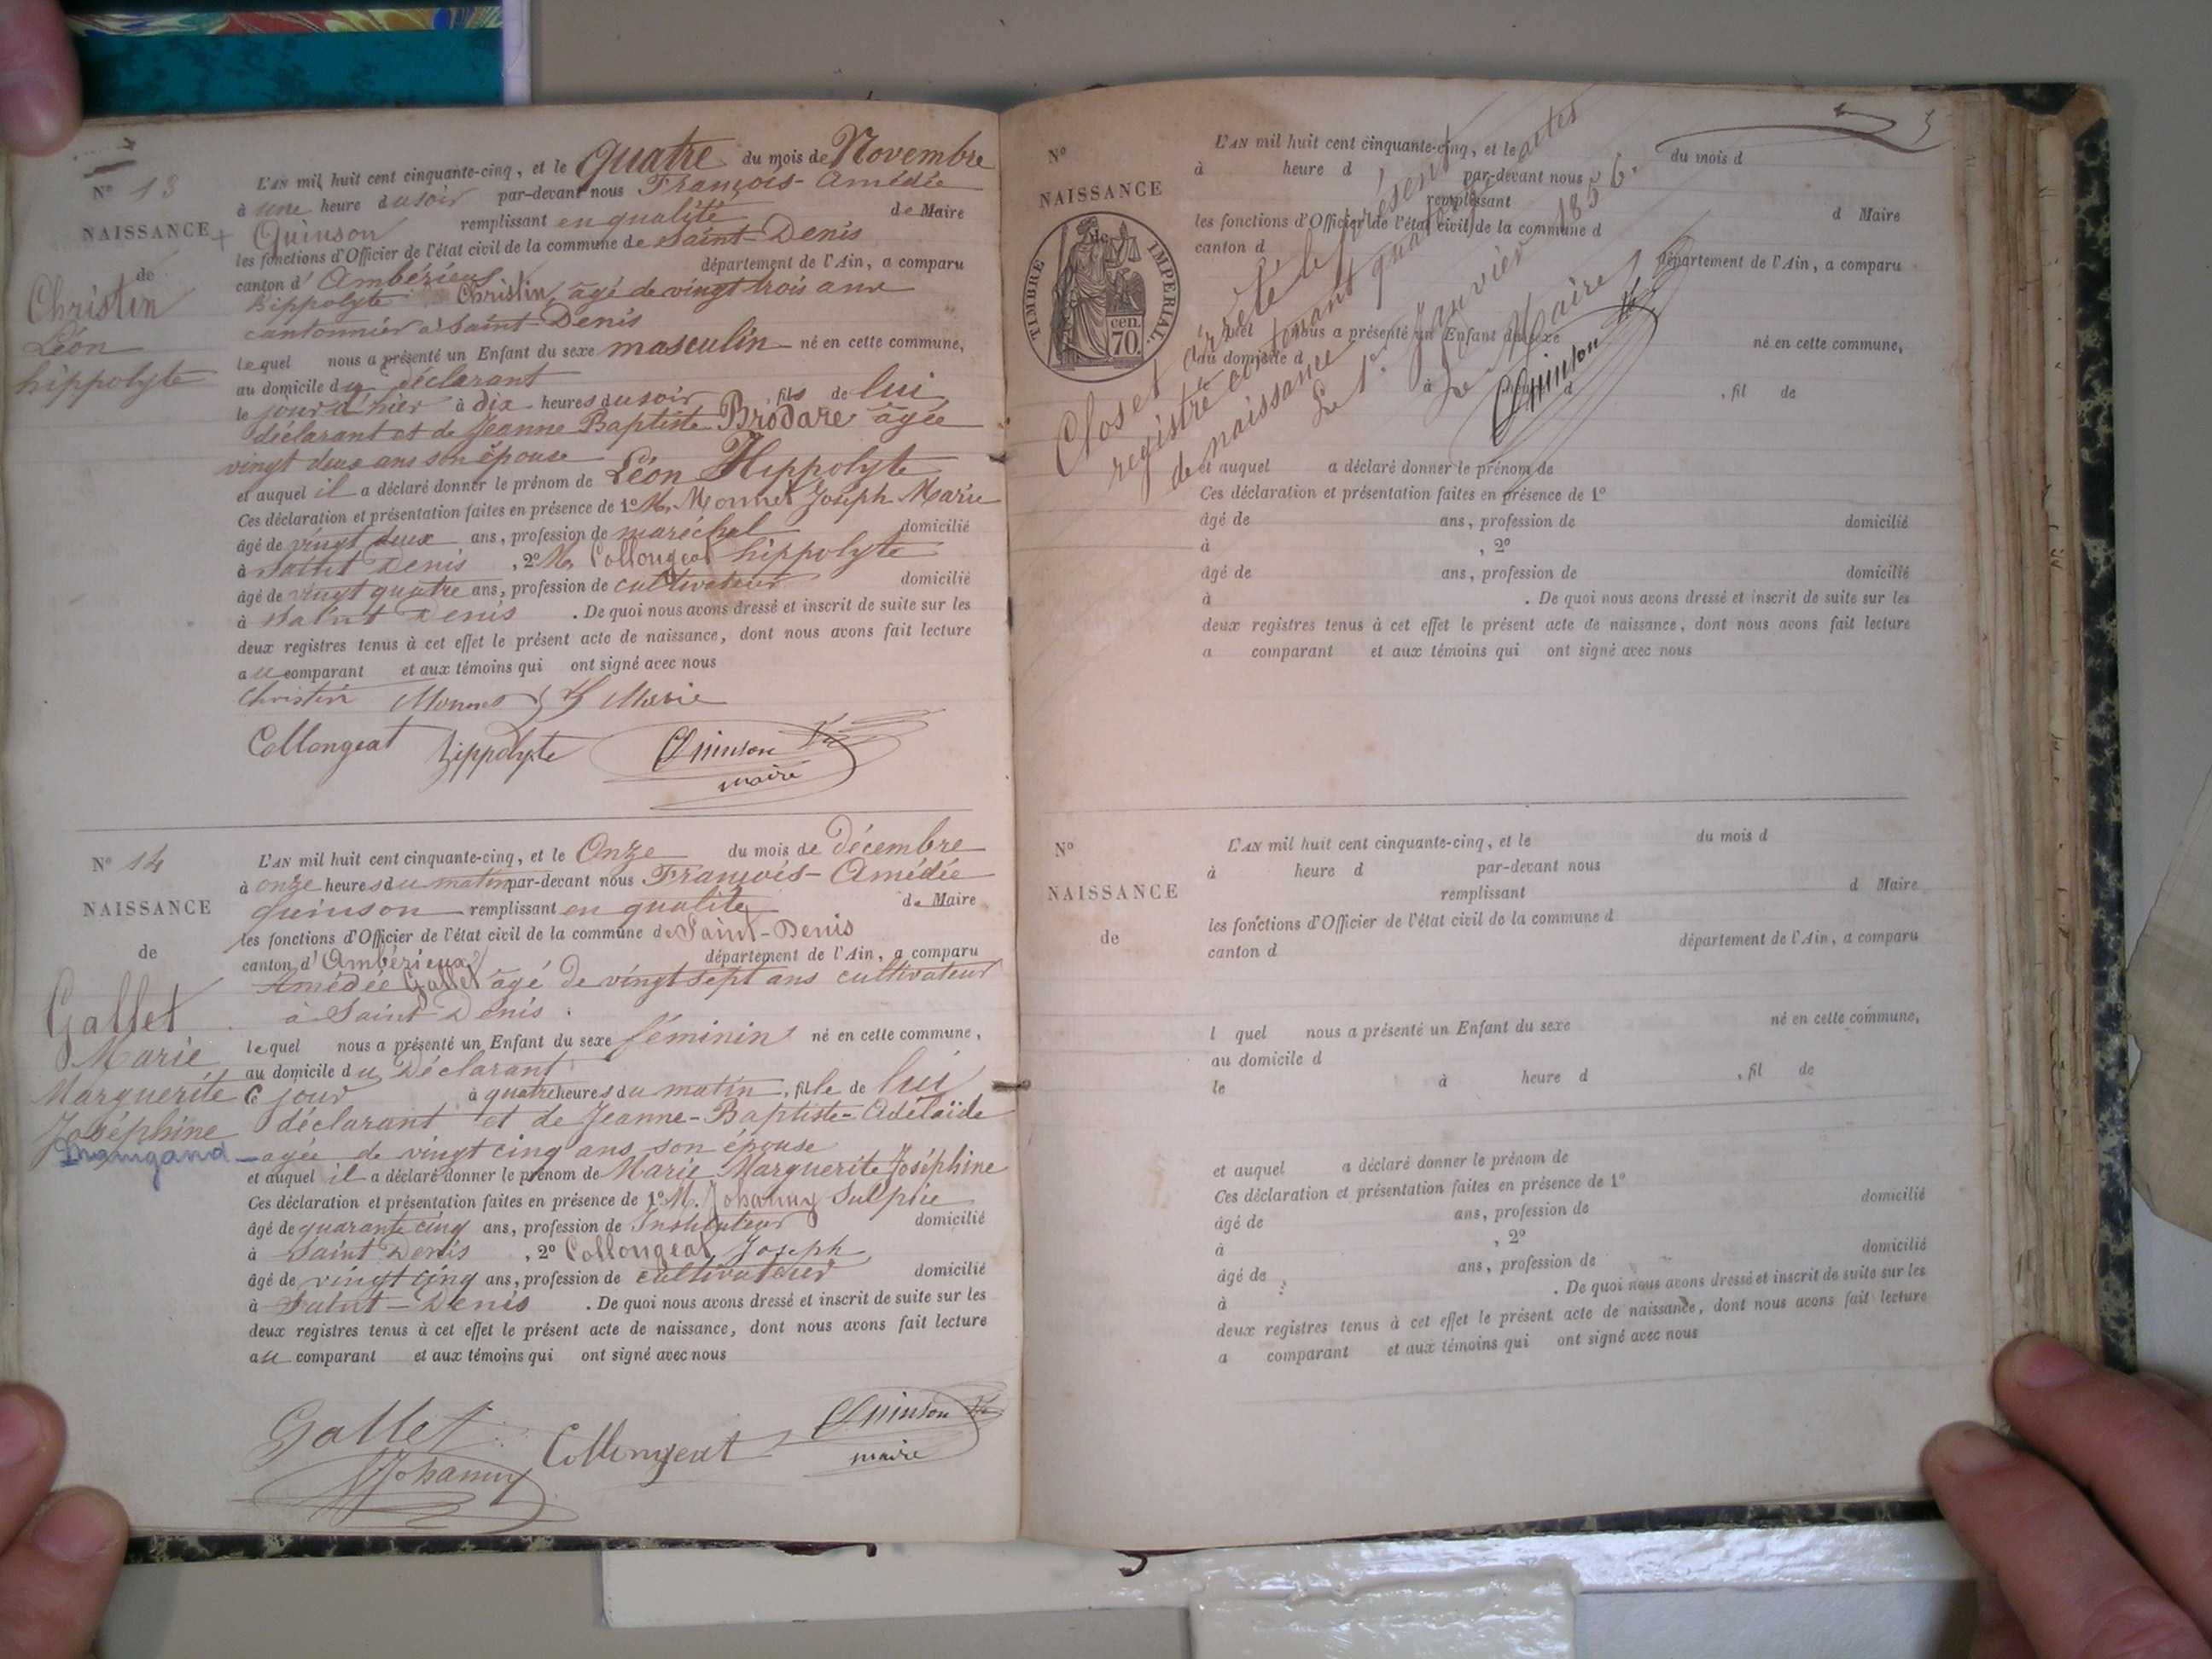 N° 13
NAISSANCE
de
Christin
Léon
hippolyte
L'AN mil huit cent cinquante-cinq, et le quatre du mois de Novembre
à une heure du soir par-devant nous François-Amédée
Quinson remplissant en qualité de Maire
les fonctions d'Officier de l'état civil de la commune de Saint-Denis
canton d'Ambérieux département de l'Ain, a comparu
hippolyte Christin, âgé de vingt trois ans
cantonnier à Saint-Denis
lequel nous a présenté un Enfant du sexe masculin né en cette commune,
au domicile du déclarant
le jour d'hier à dix heures du soir, fils de lui
déclarant et de Jeanne Baptiste Brodare âgée
vingt deux ans son épouse
et auquel il a déclaré donner le prénom de Léon Hippolyte
Ces déclaration et présentation faites en présence de 1° M. Monnet Joseph Marie
âgé de vingt deux ans, profession de maréchal domicilié
à Saint Denis , 2° M. Collongeat hippolyte
âgé de vingt quatre ans, profession de cultivateur domicilié
à Saint Denis . De quoi nous avons dressé et inscrit de suite sur les
deux registres tenus à cet effet le présent acte de naissance, dont nous avons fait lecture
au comparant et aux témoins qui ont signé avec nous
Christin Monnet Marie
Collongeat hippolyte Quinson
maire
N° 14
NAISSANCE
de
Gallet
Marie
Marguerite
Joséphine
L'AN mil huit cent cinquante-cinq, et le Onze du mois de décembre
à onze heures du matin par-devant nous François-Amédée
Quinson remplissant en qualité de Maire
les fonctions d'Officier de l'état civil de la commune de Saint-Denis
canton d'Ambérieux département de l'Ain, a comparu
Amédée Gallet âgé de vingt sept ans cultivateur
à Saint-Denis.
lequel nous a présenté un Enfant du sexe féminin né en cette commune,
au domicile du Déclarant
Ce jour à quatre heures du matin, fille de lui
déclarant et de Jeanne-Baptiste-Adélaïde
agée de vingt cinq ans son épouse
et auquel il a déclaré donner le prénom de Marie Marguerite Joséphine
Ces déclaration et présentation faites en présence de 1° M. Johanny Sulpice
âgé de quarante cinq ans, profession de Instituteur domicilié
à Saint Denis , 2° Collongeat Joseph
âgé de vingt cinq ans, profession de cultivateur domicilié
à Saint-Denis . De quoi nous avons dressé et inscrit de suite sur les
deux registres tenus à cet effet le présent acte de naissance, dont nous avons fait lecture
au comparant et aux témoins qui ont signé avec nous
Gallet Collongeat Quinson
Johanny maire
N°
NAISSANCE
de
TIMBRE IMPERIAL.
70 cen.
L'AN mil huit cent cinquante-cinq, et le du mois d
à heure d par-devant nous
remplissant d Maire
les fonctions d'Officier de l'état civil de la commune d
canton d département de l'Ain, a comparu
l quel nous a présenté un Enfant du sexe né en cette commune,
au domicile d
le à heure d , fil de
et auquel a déclaré donner le prénom de
Ces déclaration et présentation faites en présence de 1°
âgé de ans, profession de domicilié
à , 2°
âgé de ans, profession de domicilié
à . De quoi nous avons dressé et inscrit de suite sur les
deux registres tenus à cet effet le présent acte de naissance, dont nous avons fait lecture
a comparant et aux témoins qui ont signé avec nous
Clos et arrêté le présent
registre contenant quatorze actes
de naissance
Le 1er Janvier 1856.
Le Maire
Quinson
N°
NAISSANCE
de
L'AN mil huit cent cinquante-cinq, et le du mois d
à heure d par-devant nous
remplissant d Maire
les fonctions d'Officier de l'état civil de la commune d
canton d département de l'Ain, a comparu
l quel nous a présenté un Enfant du sexe né en cette commune,
au domicile d
le à heure d , fil de
et auquel a déclaré donner le prénom de
Ces déclaration et présentation faites en présence de 1°
âgé de ans, profession de domicilié
à , 2°
âgé de ans, profession de domicilié
à . De quoi nous avons dressé et inscrit de suite sur les
deux registres tenus à cet effet le présent acte de naissance, dont nous avons fait lecture
a comparant et aux témoins qui ont signé avec nous